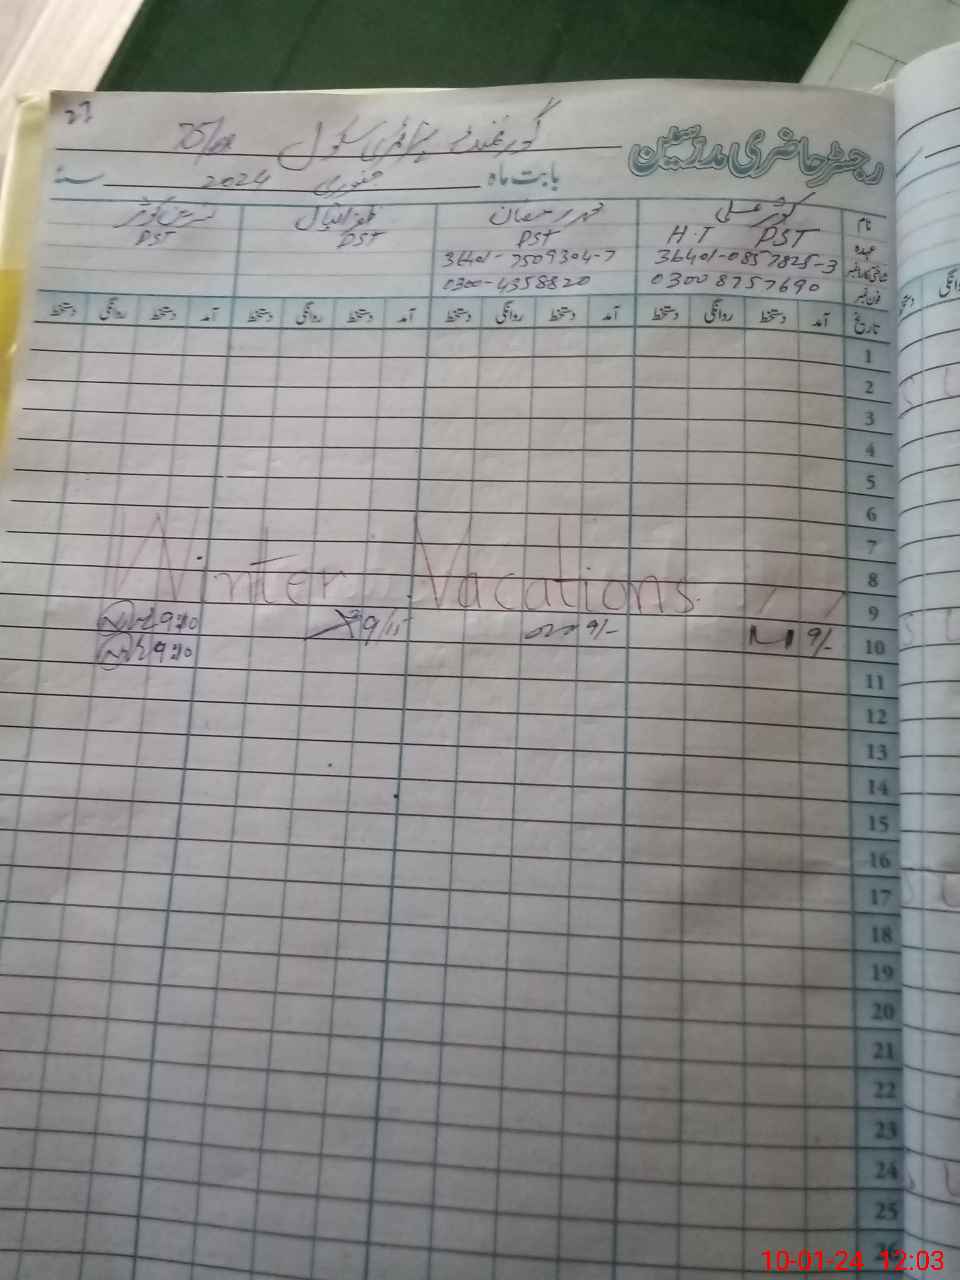 رجسٹر حاضری مدرسین
گورنمنٹ پرائمری سکول
بابت ماہ جنوری 2024
نام کوثر علی ظفر اقبال نسرین کوثر
عہدہ H.T PST PST PST PST
شناختی کارڈ نمبر 36401-0857825-3 36401-7509304-7
فون نمبر 0300 8757690 0300-4358820
تاریخ آمد دستخط روانگی دستخط آمد دستخط روانگی دستخط آمد دستخط روانگی دستخط آمد دستخط روانگی دستخط
1
2
3
4
5
6
7
8
Winter Vacations
9
10 9/- 9/- 9/15
11
12
13
14
15
16
17
18
19
20
21
22
23
24
25
26
10-01-24 12:03